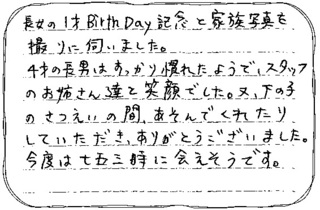 長女の1才Birth Day記念と家族写真を
撮りに伺いました。
4才の長男はすっかり慣れたようで、スタッフ
のお姉さん達と笑顔でした。又、下の子
のさつえいの間、あそんでくれたり
していただき、ありがとうございました。
今度は七五三時に会えそうです。